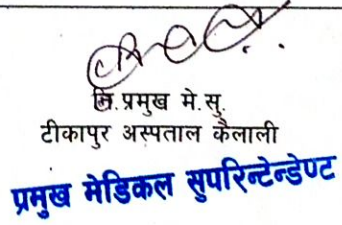 नि.प्रमुख मे.सु.
टीकापुर अस्पताल कैलाली
प्रमुख मेडिकल सुपरिन्टेन्डेण्ट